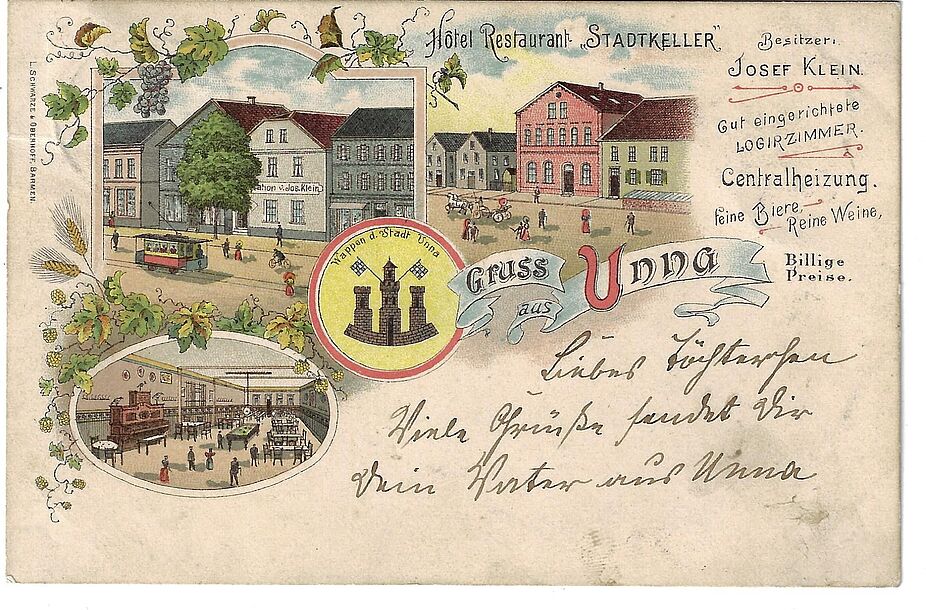 Hôtel Restaurant „STADTKELLER”
Besitzer:
JOSEF KLEIN.
Gut eingerichtete
LOGIRZIMMER.
Centralheizung.
feine Biere,
Reine Weine,
Billige
Preise.
L. SCHWARZE & OBERHOFF, BARMEN.
ation v. Jos. Klein
Wappen d. Stadt Unna
Gruss
aus
Unna
Liebes Töchterchen
Viele Grüße sendet Dir
Dein Vater aus Unna